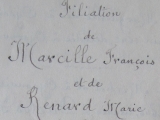 Filiation
de
Marcille François
et de
Renard Marie